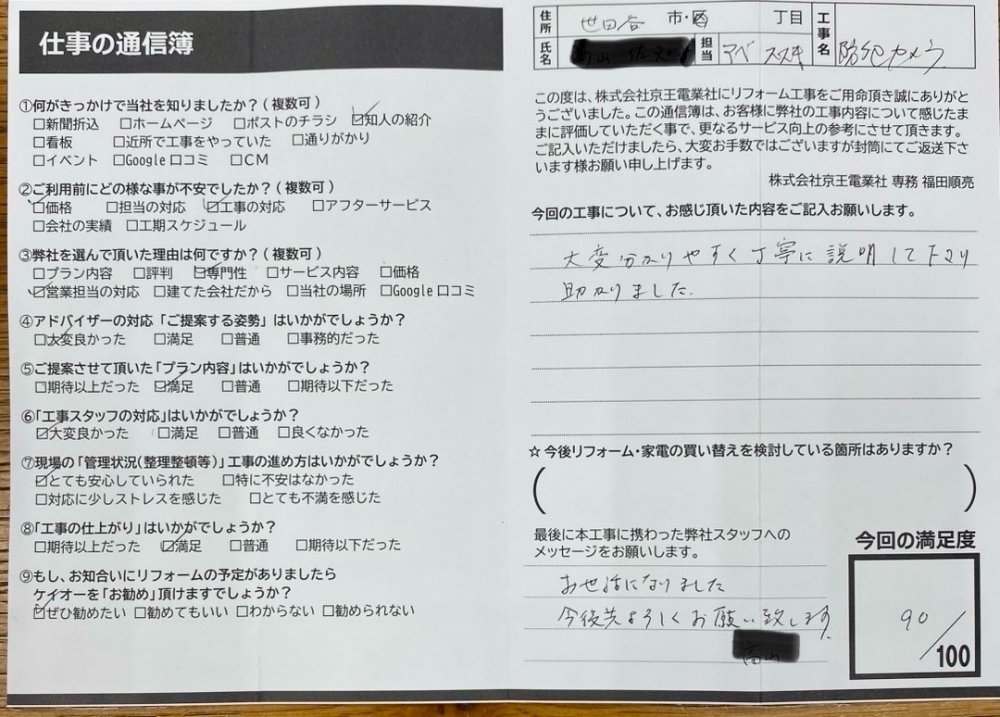 仕事の通信簿
①何がきっかけで当社を知りましたか?(複数可)
□新聞折込 □ホームページ □ポストのチラシ ☑知人の紹介
□看板 □近所で工事をやっていた □通りがかり
□イベント □Google口コミ □CM
②ご利用前にどの様な事が不安でしたか?(複数可)
☑価格 □担当の対応 ☑工事の対応 □アフターサービス
□会社の実績 □工期スケジュール
③弊社を選んで頂いた理由は何ですか?(複数可)
□プラン内容 □評判 ☑専門性 □サービス内容 □価格
☑営業担当の対応 □建てた会社だから □当社の場所 □Google口コミ
④アドバイザーの対応「ご提案する姿勢」はいかがでしょうか?
☑大変良かった □満足 □普通 □事務的だった
⑤ご提案させて頂いた「プラン内容」はいかがでしょうか?
□期待以上だった ☑満足 □普通 □期待以下だった
⑥「工事スタッフの対応」はいかがでしょうか?
☑大変良かった □満足 □普通 □良くなかった
⑦現場の「管理状況(整理整頓等)」工事の進め方はいかがでしょうか?
☑とても安心していられた □特に不安はなかった
□対応に少しストレスを感じた □とても不満を感じた
⑧「工事の仕上がり」はいかがでしょうか?
□期待以上だった ☑満足 □普通 □期待以下だった
⑨もし、お知合いにリフォームの予定がありましたら
ケイオーを「お勧め」頂けますでしょうか?
☑ぜひ勧めたい □勧めてもいい □わからない □勧められない
住所 世田谷 市・区 丁目
氏名 担当 アベ スズキ
工事名 防犯カメラ
この度は、株式会社京王電業社にリフォーム工事をご用命頂き誠にありがと
うございました。この通信簿は、お客様に弊社の工事内容について感じたま
まに評価していただく事で、更なるサービス向上の参考にさせて頂きます。
ご記入いただけましたら、大変お手数ではございますが封筒にてご返送下さ
います様お願い申し上げます。
株式会社京王電業社 専務 福田順亮
今回の工事について、お感じ頂いた内容をご記入お願いします。
大変分かりやすく丁寧に説明して下さり
助かりました.
☆今後リフォーム・家電の買い替えを検討している箇所はありますか?
( )
最後に本工事に携わった弊社スタッフへの
メッセージをお願いします。
お世話になりました
今後共よろしくお願い致します
今回の満足度
90/100